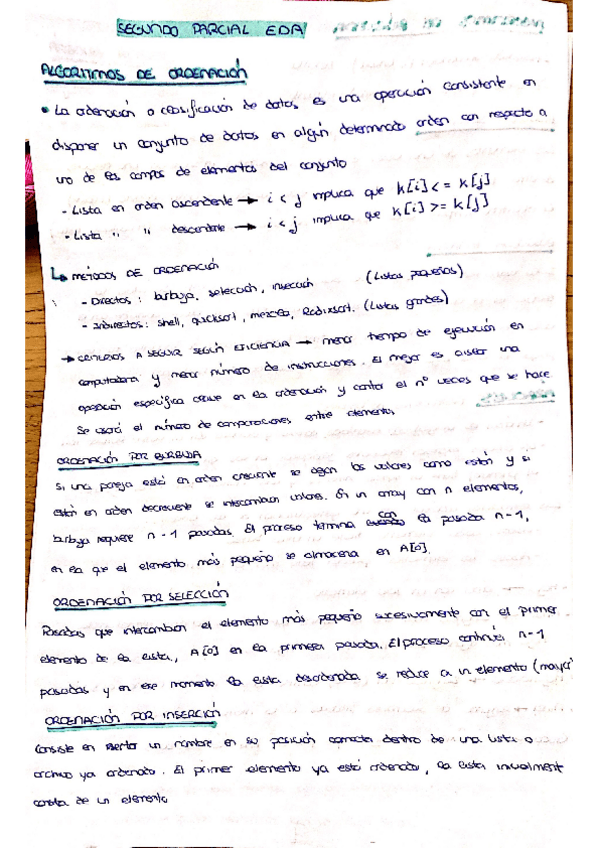 SEGUNDO PARCIAL EDA
ALGORITMOS DE ORDENACIÓN
• La ordenación o clasificación de datos es una operación consistente en
disponer un conjunto de datos en algún determinado orden con respecto a
uno de los campos de elementos del conjunto
- Lista en orden ascendente → i < j implica que k[i] <= k[j]
- Lista " " descendente → i < j implica que k[i] >= k[j]
↳ MÉTODOS DE ORDENACIÓN
- Directos: burbuja, selección, inserción (Listas pequeñas)
- Indirectos: shell, quicksort, mezcla, Radixsort. (Listas grandes)
→ CRITERIOS A SEGUIR SEGÚN EFICIENCIA → menor tiempo de ejecución en
computadora y menor número de instrucciones. El mejor es aislar una
operación específica clave en la ordenación y contar el nº veces que se hace
Se usará el número de comparaciones entre elementos
ORDENACIÓN POR BURBUJA
Si una pareja está en orden creciente se dejan los valores como están y si
están en orden decreciente se intercambian valores. En un array con n elementos,
burbuja requiere n - 1 pasadas. El proceso termina con la pasada n - 1,
en la que el elemento más pequeño se almacena en A[0].
ORDENACIÓN POR SELECCIÓN
Pasadas que intercambian el elemento más pequeño sucesivamente con el primer
elemento de la lista, A[0] en la primera pasada. El proceso continúa n-1
pasadas y en ese momento la lista desordenada se reduce a un elemento (mayor
ORDENACIÓN POR INSERCIÓN
Consiste en insertar un nombre en su posición correcta dentro de una lista o
archivo ya ordenado. El primer elemento ya está ordenado, la lista inicialment
consta de un elemento